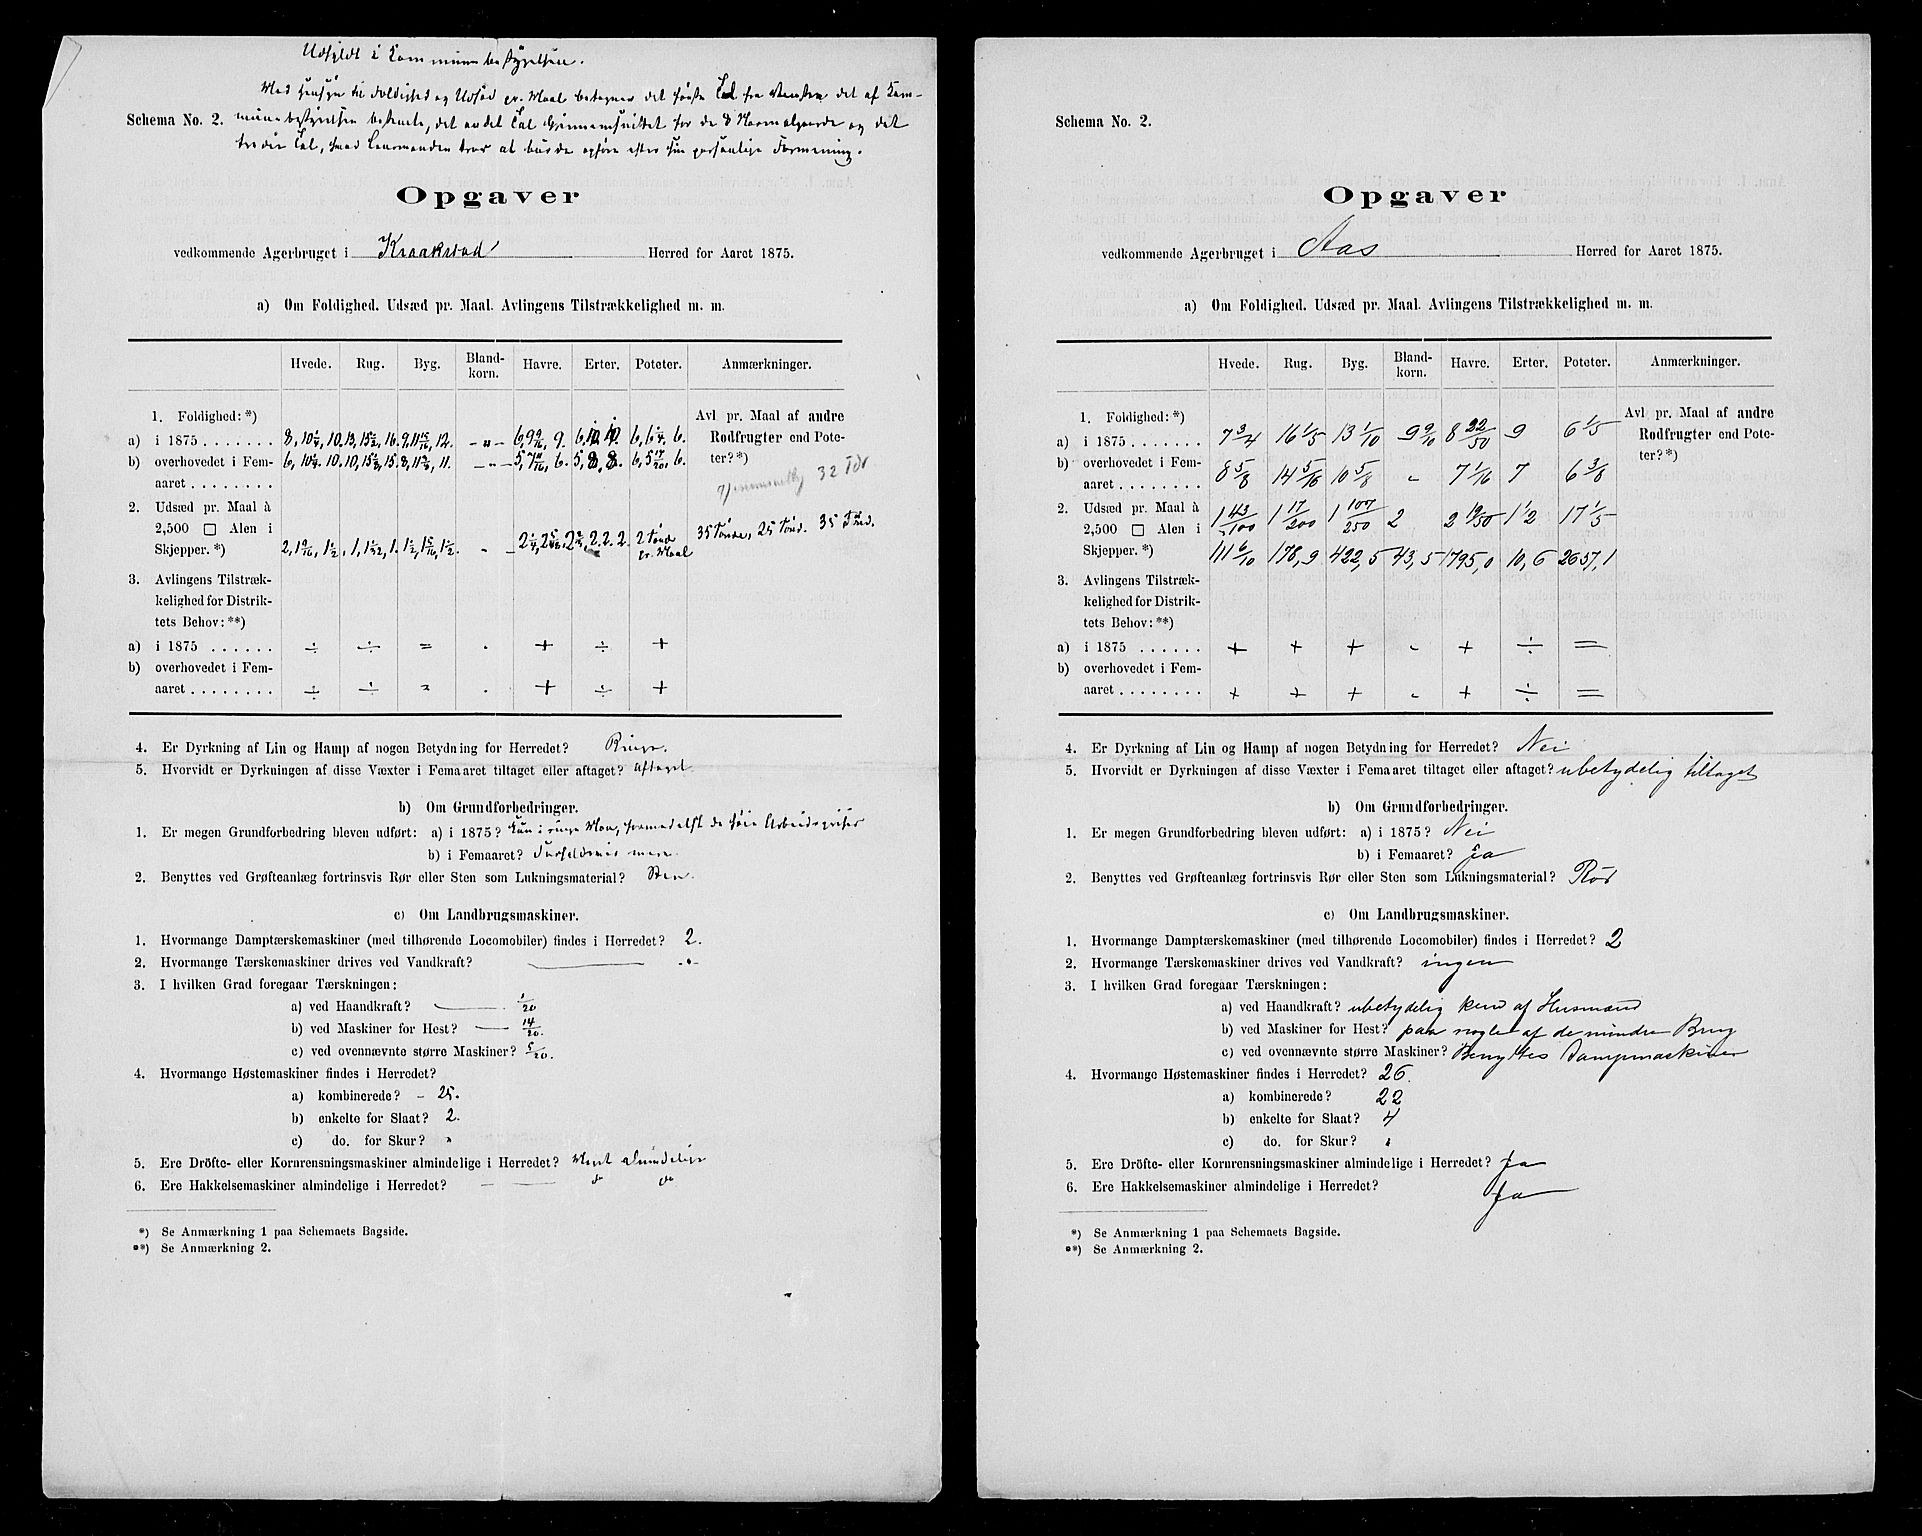 Udfyldt i Kommunebestyrelsen.
Med Hensyn til Foldighed og Udsæd pr. Maal betegner det første Tal fra Venstre det af Kom-
Schema No. 2. munebestyrelsen bestemte, det andet Tal Gjennemsnittet for de 8 Normalgaarde og det
tredie Tal, hvad Lensmanden tror at burde opføre efter sin personlige Formening.
Opgaver
vedkommende Agerbruget i Kraakstad Herred for Aaret 1875.
a) Om Foldighed. Udsæd pr. Maal. Avlingens Tilstrækkelighed m. m.
Hvede. Rug. Byg. Bland-korn. Havre. Erter. Poteter. Anmærkninger.
1. Foldighed:*) Avl pr. Maal af andre
a) i 1875 . . . . . . . 8, 10 1/4, 10. 13, 15 1/2, 16. 9, 11 15/16, 12. - " - 6, 9 9/16, 9. 6, 6 1/4, 6. Rodfrugter end Pote-
b) overhovedet i Fem- 6, 10 1/4, 10. 11. - " - 6. 5, 8, 8. 6, 5 17/20, 6. ter?*)
aaret . . . . . . . . 32 Tdr
2. Udsæd pr. Maal à
2,500 □ Alen i 35 Tønde, 25 Tønd. 35 Tønd.
Skjepper.*) 2, 1 9/16, 1 1/2. 1, 1 1/32, 1. 1 1/2, 1 5/16, 1 1/2. " 2, 2, 2. 2 Tønde pr. Maal
3. Avlingens Tilstræk-
kelighed for Distrik-
tets Behov:**)
a) i 1875 . . . . . . ÷ ÷ = . + ÷ +
b) overhovedet i Fem-
aaret . . . . . . . . ÷ ÷ = . + ÷ +
4. Er Dyrkning af Lin og Hamp af nogen Betydning for Herredet? Ringe.
5. Hvorvidt er Dyrkningen af disse Væxter i Femaaret tiltaget eller aftaget? Aftaget.
b) Om Grundforbedringer.
1. Er megen Grundforbedring bleven udført: a) i 1875? Kun i ringe Mon, formedelst de høie Arbeidspriser
b) i Femaaret? Forholdsvis mere.
2. Benyttes ved Grøfteanlæg fortrinsvis Rør eller Sten som Lukningsmaterial? Sten.
c) Om Landbrugsmaskiner.
1. Hvormange Damptærskemaskiner (med tilhørende Locomobiler) findes i Herredet? 2.
2. Hvormange Tærskemaskiner drives ved Vandkraft? - " -
3. I hvilken Grad foregaar Tærskningen:
a) ved Haandkraft? 1/20
b) ved Maskiner for Hest? 14/20.
c) ved ovennævnte større Maskiner? 5/20.
4. Hvormange Høstemaskiner findes i Herredet?
a) kombinerede? - 25.
b) enkelte for Slaat? 2.
c) do. for Skur? "
5. Ere Dröfte- eller Kornrensningsmaskiner almindelige i Herredet? Meget almindelige
6. Ere Hakkelsemaskiner almindelige i Herredet? do do
*) Se Anmærkning 1 paa Schemaets Bagside.
**) Se Anmærkning 2.
Schema No. 2.
Opgaver
vedkommende Agerbruget i Aas Herred for Aaret 1875.
a) Om Foldighed. Udsæd pr. Maal. Avlingens Tilstrækkelighed m. m.
Hvede. Rug. Byg. Bland-korn. Havre. Erter. Poteter. Anmærkninger.
1. Foldighed:*) Avl pr. Maal af andre
a) i 1875 . . . . . . . 7 3/4 16 1/5 13 1/10 9 9/10 8 22/50 9 6 1/5 Rodfrugter end Pote-
b) overhovedet i Fem- ter?*)
aaret . . . . . . . . 8 5/8 14 5/16 10 5/8 " 7 1/16 7 6 3/8
2. Udsæd pr. Maal à
2,500 □ Alen i 1 43/100 1 17/200 1 107/250 2 2 19/50 1 1/2 17 1/5
Skjepper.*) 111 6/10 178,9 422,5 43,5 1795,0 10,6 2657,1
3. Avlingens Tilstræk-
kelighed for Distrik-
tets Behov:**)
a) i 1875 . . . . . . + + + " + ÷ =
b) overhovedet i Fem-
aaret . . . . . . . . + + + " + ÷ =
4. Er Dyrkning af Lin og Hamp af nogen Betydning for Herredet? Nei
5. Hvorvidt er Dyrkningen af disse Væxter i Femaaret tiltaget eller aftaget? ubetydelig tiltaget
b) Om Grundforbedringer.
1. Er megen Grundforbedring bleven udført: a) i 1875? Nei
b) i Femaaret? Ja
2. Benyttes ved Grøfteanlæg fortrinsvis Rør eller Sten som Lukningsmaterial? Rör
c) Om Landbrugsmaskiner.
1. Hvormange Damptærskemaskiner (med tilhørende Locomobiler) findes i Herredet? 2
2. Hvormange Tærskemaskiner drives ved Vandkraft? ingen
3. I hvilken Grad foregaar Tærskningen:
a) ved Haandkraft? ubetydelig kun af Husmænd
b) ved Maskiner for Hest? paa nogle af de mindre Brug
c) ved ovennævnte større Maskiner? Benyttes Dampmaskiner
4. Hvormange Høstemaskiner findes i Herredet? 26.
a) kombinerede? 22
b) enkelte for Slaat? 4
c) do. for Skur? "
5. Ere Dröfte- eller Kornrensningsmaskiner almindelige i Herredet? Ja
6. Ere Hakkelsemaskiner almindelige i Herredet? Ja
*) Se Anmærkning 1 paa Schemaets Bagside.
**) Se Anmærkning 2.